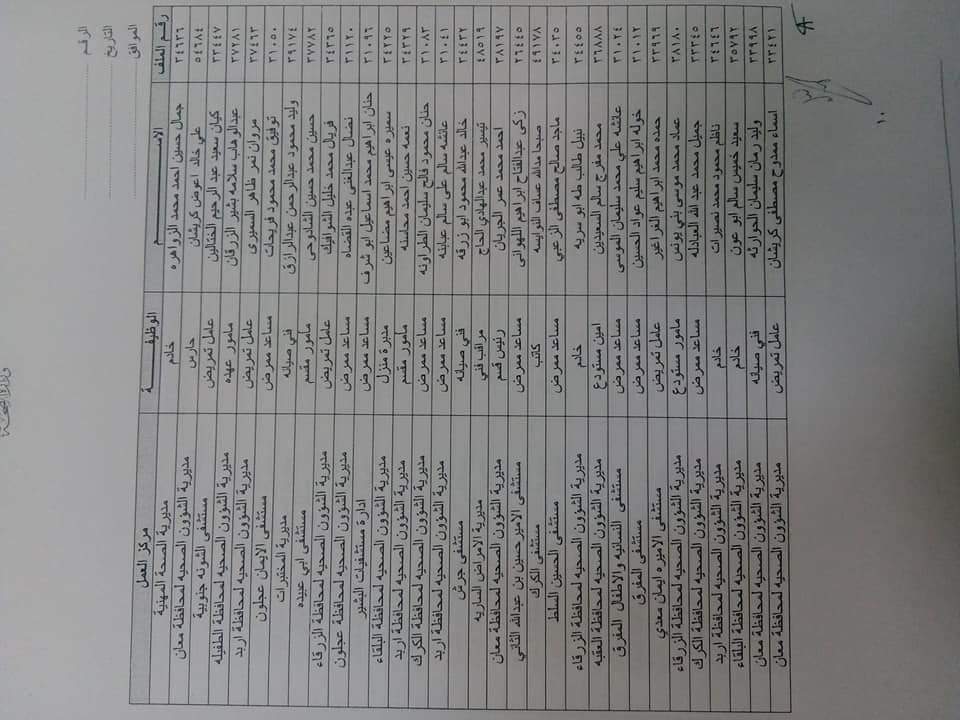 الرقم
التاريخ
الموافق
رقم الملف الاســـــم الوظيفـــــة مركز العمل
٢٤٦٣٦ جمال حسين احمد محمد الزواهره خادم مديرية الصحة المهنية
٥٤٦٨٤ علي خالد اعوض كريشان حارس مديرية الشؤون الصحيه لمحافظة معان
٢٣٤٤٧ كيان سعيد عبد الرحيم الختالين عامل تمريض مستشفى الشونه جنوبية
٢٧٢٨١ عبدالوهاب سلامه بشير الزرقان مامور عهده مديرية الشؤون الصحيه لمحافظة الطفيله
٣٧٤٦٣ مروان نمر ظاهر السميري عامل تمريض مديرية الشؤون الصحيه لمحافظة اربد
٣١٠٥٠ توفيق محمد محمود فريحات مساعد ممرض مستشفى الايمان عجلون
٢٩١٧٤ وليد محمود عبدالرحمن عبدالرازق فني صيانه مديرية المختبرات
٣٧٧٨٢ حسين محمد حسين الشادوحي مأمور مقسم مستشفى ابي عبيده
٢٤٣٦٥ فريال محمد خليل الشوافيك عامل تمريض مديرية الشؤون الصحيه لمحافظة الزرقاء
٣١١٢٠ نضال عبدالغني عبده القضاه مساعد ممرض مديرية الشؤون الصحيه لمحافظة عجلون
٢١٠٩٦ حنان ابراهيم محمد اسماعيل ابو شرف مساعد ممرض ادارة مستشفيات البشير
٢٤٢٢٥ سميره عيسى ابراهيم مضاعين مديرة منزل مديرية الشؤون الصحيه لمحافظة البلقاء
٢٤٣٢٩ نعمه حسين احمد محاسنه مأمور مقسم مديرية الشؤون الصحيه لمحافظة اربد
٢١٠٨٣ حنان محمود فالح سليمان الطراونه مساعد ممرض مديرية الشؤون الصحيه لمحافظة الكرك
٢١٠٤١ عائشه سالم علي سالم عبابنه مساعد ممرض مديرية الشؤون الصحيه لمحافظة اربد
٢٤٤٣٢ خالد عبدالله محمود ابو زرقه فني صيانه مستشفى جرش
٤٨٥١٩ تيسير محمد عبدالهادي الحاج مراقب فني مديرية الامراض الساريه
٢٨١٩٧ احمد محمد عمر الجريان رئيس قسم مديرية الشؤون الصحيه لمحافظة معان
٢٩٤٤٥ زكي عبدالفتاح ابراهيم اللهواني مساعد ممرض مستشفى الامير حسين بن عبدالله الثاني
٤٩١٧٨ صبحا مدالله عساف النوايسه كاتب مستشفى الكرك
٢٠٠٢٥ ماجد صالح مصطفى الزعبي مساعد ممرض مستشفى الحسين السلط
٢٤٤٥٥ نبيل طالب طه ابو سريه خادم مديرية الشؤون الصحيه لمحافظة الزرقاء
٢٦٨٨٨ محمد مفرج سالم السعيديين امين مستودع مديرية الشؤون الصحيه لمحافظة العقبه
٢١٠٢٤ عائشه علي محمد سليمان الموسى مساعد ممرض مستشفى النسائيه والاطفال المفرق
٢١٠١٢ خوله ابراهيم سليم عواد الحسين مساعد ممرض مستشفى المفرق
٢٣٩٦٩ حمده محمد ابراهيم الفراغير عامل تمريض مستشفى الاميره ايمان معدي
٢٨١٨٠ عماد محمد موسى بني يونس مأمور مستودع مديرية الشؤون الصحيه لمحافظة الزرقاء
٢٣٣٤٥ جميل محمد عبد الله العبادله مساعد ممرض مديرية الشؤون الصحيه لمحافظة الكرك
٢٤٦٤٦ ناظم محمود محمد نصيرات خادم مديرية الشؤون الصحيه لمحافظة اربد
٢٥٧٩٢ سعيد خميس سالم ابو عون خادم مديرية الشؤون الصحيه لمحافظة البلقاء
٢٣٩٩٨ وليد رمان سليمان الحوارثه فني صيانه مديرية الشؤون الصحيه لمحافظة معان
٢٣٤٢١ اسماء ممدوح مصطفى كريشان عامل تمريض مديرية الشؤون الصحيه لمحافظة معان
١٠